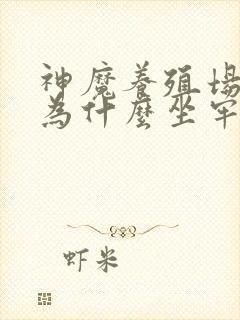 神魔養殖場
為什麼坐牢
虾米